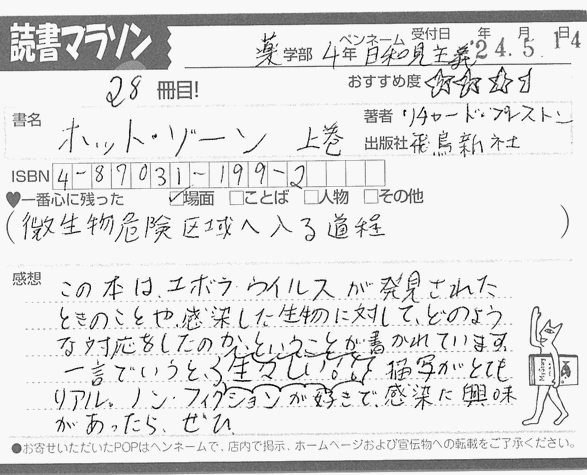 読書マラソン
薬学部 4年 ペンネーム 日和見主義 受付日 '24年5月14日
28冊目!
おすすめ度 ☆☆☆☆
書名 ホット・ゾーン 上巻
著者 リチャード・プレストン
出版社 飛鳥新社
ISBN 4-87031-199-2
♥一番心に残った ☑場面 □ことば □人物 □その他
(微生物危険区域へ入る道程)
感想
この本は、エボラ・ウイルスが発見された
ときのことや、感染した生物に対して、どのよう
な対応をしたのか、ということが書かれています。
一言でいうと、生々しい!!描写がとても
リアル。ノン・フィクションが好きで、感染に興味
があったら、ぜひ
●お寄せいただいたPOPはペンネームで、店内で掲示、ホームページおよび宣伝物への転載をご了承ください。